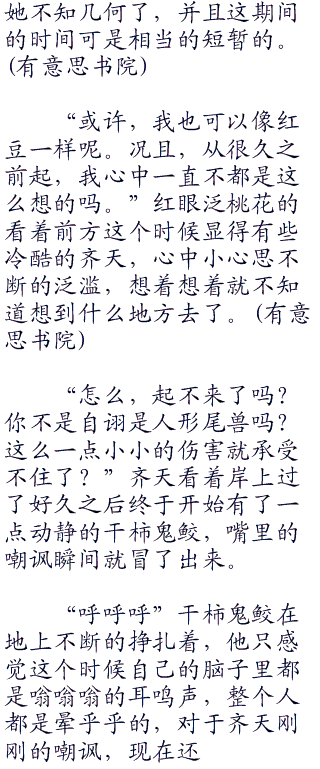 她不知几何了，并且这期间
的时间可是相当的短暂的。
(有意思书院)
“或许，我也可以像红
豆一样呢。况且，从很久之
前起，我心中一直不都是这
么想的吗。”红眼泛桃花的
看着前方这个时候显得有些
冷酷的齐天，心中小心思不
断的泛滥，想着想着就不知
道想到什么地方去了。(有意
思书院)
“怎么，起不来了吗？
你不是自诩是人形尾兽吗？
这么一点小小的伤害就承受
不住了？”齐天看着岸上过
了好久之后终于开始有了一
点动静的干柿鬼鲛，嘴里的
嘲讽瞬间就冒了出来。
“呼呼呼”干柿鬼鲛在
地上不断的挣扎着，他只感
觉这个时候自己的脑子里都
是嗡嗡嗡的耳鸣声，整个人
都是晕乎乎的，对于齐天刚
刚的嘲讽，现在还